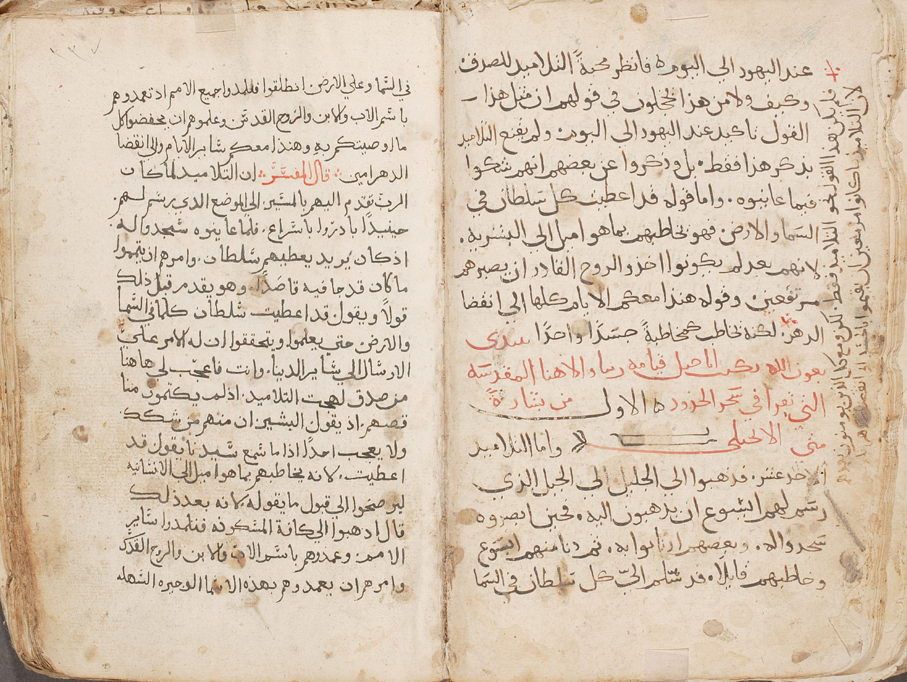 عند اليهود الى اليوم ه فانظر محبة التلاميذ للصدق
وكيف ولا من هذا يخجلون في قولهم ان مثل هذا
القول تاكيد عند اليهود الى اليوم ولم يقنع التلاميذ
بذكر هذا فقط بل وذكروا عن بعضهم انهم شكوا
فيما عاينوه واما قوله قد اعطيت كل سلطان في
السما والارض فهو يخاطبهم بما هو اميل الى البشرية
لانهم بعد لم يكونوا اخذوا الروح القادر ان يصيرهم
مرتفعين وقوله هنذا معكم الايام كلها الى انقضا
الدهر لكنه يخاطب كمخاطبة جسدا واحدا نبتدى
بعون الله بكتب اناجيل قيامة ربنا والاهنا المقدسة
التي تقرا في سحر الحدود ه الاول من بشارة
متى الانجيلي واما التلاميذ
الاحد عشر فذهبوا الى الجليل الى الجبل الذي
رسم لهم ايسوع ان يذهبون اليه فحين ابصروه
سجدوا له وبعضهم ارتابوا به ثم دنا منهم ايسوع
وخاطبهم قايلا قد سلم الي كل سلطان في السما
في السما وعلى الارض انطلقوا فتلمدوا جميع الامم اذ تعمدوهم
باسم الاب والابن والروح القدس وعلموهم ان يحفضوا كل
ما اوصيتكم به وهنذا معكم ساير الايام والى انقضا
الدهر امين قال المفسر ان التلاميد لما كان
الرب تقدم اليهم بالمسير الى الموضع الدي رسم لهم
حينيدا بادروا باسراع فلما عاينوه سجدوا له
اذ كان يريد يعطيهم سلطان وامرهم ان يتمموا
ما كان قد جا فيه قاصدا وهو يقدم قبل ذلك
قولا ويقول قد اعطيت سلطان كلما في السما
والارض حتى يعلموا ويتحققوا ان له الامر على
الارسال الى ساير الدنيا وانت فاعجب لي هاهنا
من صدق لهجت التلاميد اذ لم يكتمون منا
نقصهم اذ يقول البشير ان منهم من شكك
ولا يعجب احدا اذا ما سمع سيدنا يقول قد
اعطيت لانه يخاطبهم بما هو اميل الى الانسانية
الى قبول ما يقوله لانه بعد ذلك
قال اذهبوا الى كافة المسكونه فتلمدوا ساير
الامم وعمدوهم باسم الاب والابن والروح القدس
وامرهم ان يعمدوهم بهذه الاسما الوجيزه السهله